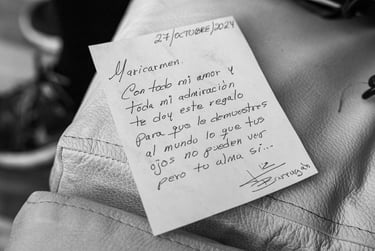 27/OCTUBRE/2024
Maricarmen.
Con todo mi amor y
toda mi admiración
te doy este regalo
para que le demuestres
al mundo lo que tus
ojos no pueden ver
pero tu alma si...